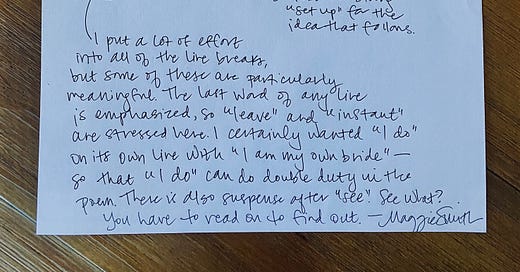 "set up" for the
idea that follows.
I put a lot of effort
into all of the line breaks,
but some of these are particularly
meaningful. The last word of any line
is emphasized, so "leave" and "instant"
are stressed here. I certainly wanted "I do"
on its own line with "I am my own bride"—
so that "I do" can do double duty in the
poem. There is also suspense after "see". See what?
You have to read on to find out. —Maggie Smith